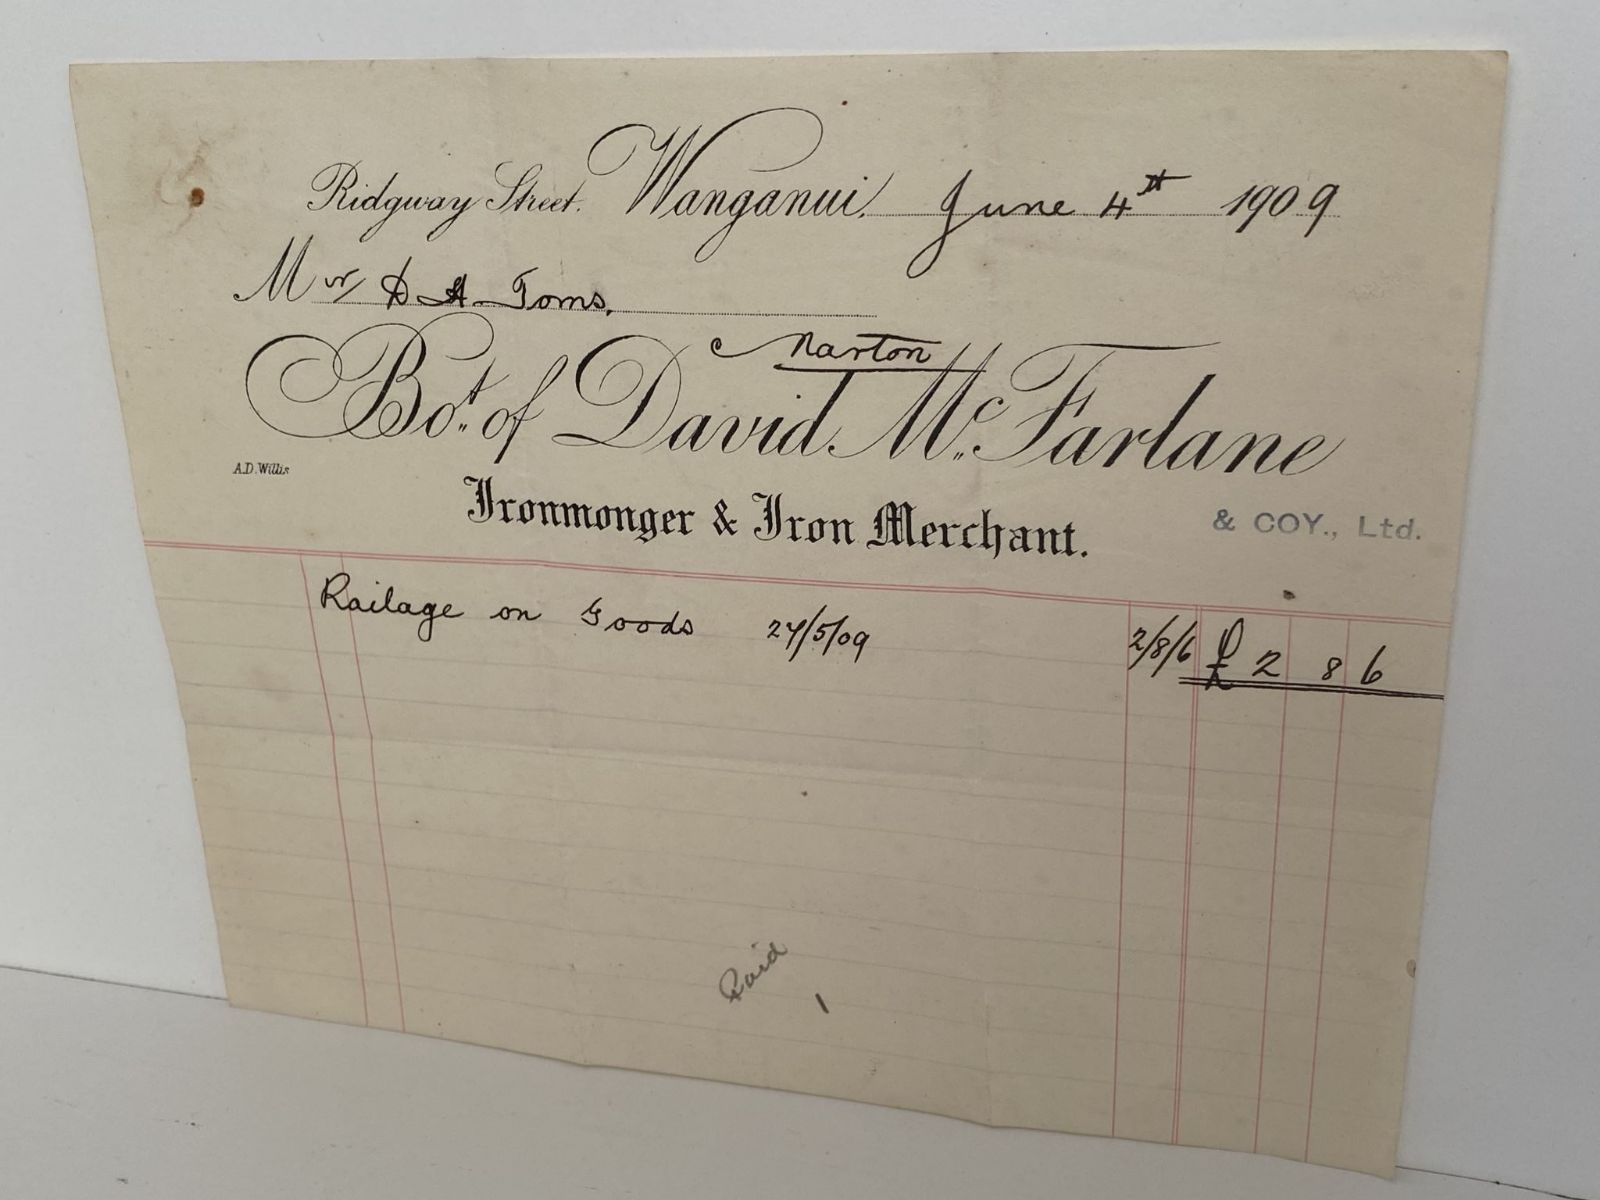 Ridgway Street. Wanganui, June 4th 1909
Mr D A Toms,
Marton
Bot. of David Mc. Farlane
A.D. Willis
Ironmonger & Iron Merchant.
& COY., Ltd.
Railage on Goods 27/5/09 2/8/6 £ 2 8 6
Paid